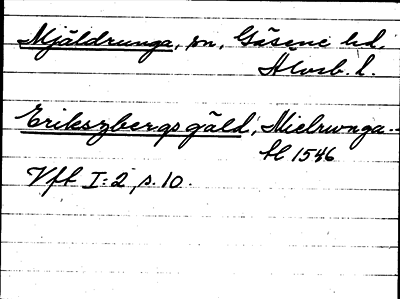 Mjäldrunga, sn, Gäsene hd.
Älvsb. l.
Erikszbergs gäld, Mielrwnga..
tl 1546
Vft I:2, s. 10.